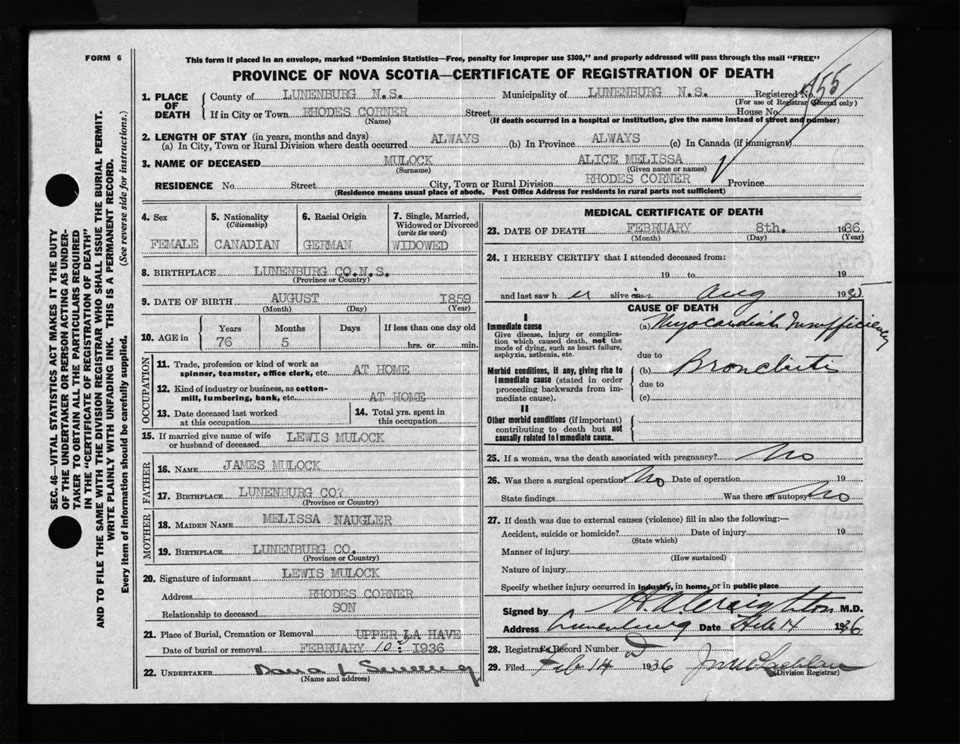 FORM 6
This form if placed in an envelope, marked "Dominion Statistics—Free, penalty for improper use $300," and properly addressed will pass through the mail "FREE"
PROVINCE OF NOVA SCOTIA—CERTIFICATE OF REGISTRATION OF DEATH
SEC. 46—VITAL STATISTICS ACT MAKES IT THE DUTY
OF THE UNDERTAKER OR PERSON ACTING AS UNDER-
TAKER TO OBTAIN ALL THE PARTICULARS REQUIRED
IN THE "CERTIFICATE OF REGISTRATION OF DEATH"
AND TO FILE THE SAME WITH THE DIVISION REGISTRAR WHO SHALL ISSUE THE BURIAL PERMIT.
WRITE PLAINLY WITH UNFADING INK. THIS IS A PERMANENT RECORD.
Every item of information should be carefully supplied. (See reverse side for instructions.)
1. PLACE OF DEATH
County of LUNENBURG N.S. Municipality of LUNENBURG N.S. Registered No. 155
(For use of Registrar General only)
If in City or Town RHODES CORNER Street House No.
(Name) (If death occurred in a hospital or institution, give the name instead of street and number)
2. LENGTH OF STAY (in years, months and days)
(a) In City, Town or Rural Division where death occurred ALWAYS (b) In Province ALWAYS (c) In Canada (if immigrant)
3. NAME OF DECEASED MULOCK ALICE MELISSA
(Surname) (Given name or names)
RESIDENCE No. Street City, Town or Rural Division RHODES CORNER Province
(Residence means usual place of abode. Post Office Address for residents in rural parts not sufficient)
4. Sex 5. Nationality (Citizenship) 6. Racial Origin 7. Single, Married, Widowed or Divorced (write the word)
FEMALE CANADIAN GERMAN WIDOWED
8. BIRTHPLACE LUNENBURG CO.N.S.
(Province or Country)
9. DATE OF BIRTH AUGUST 1859
(Month) (Day) (Year)
10. AGE in Years Months Days If less than one day old
76 5 hrs. or min.
OCCUPATION
11. Trade, profession or kind of work as
spinner, teamster, office clerk, etc. AT HOME
12. Kind of industry or business, as cotton-
mill, lumbering, bank, etc. AT HOME
13. Date deceased last worked at this occupation 14. Total yrs. spent in this occupation
15. If married give name of wife or husband of deceased LEWIS MULOCK
FATHER
16. NAME JAMES MULOCK
17. BIRTHPLACE LUNENBURG CO?
(Province or Country)
MOTHER
18. MAIDEN NAME MELISSA NAUGLER
19. BIRTHPLACE LUNENBURG CO.
(Province or Country)
20. Signature of informant LEWIS MULOCK
Address RHODES CORNER
Relationship to deceased SON
21. Place of Burial, Cremation or Removal UPPER LA HAVE
Date of burial or removal FEBRUARY 10 1936
22. UNDERTAKER
(Name and address)
MEDICAL CERTIFICATE OF DEATH
23. DATE OF DEATH FEBRUARY 8th. 1936.
(Month) (Day) (Year)
24. I HEREBY CERTIFY that I attended deceased from:
19 to 19
and last saw h er alive in Aug 1935
CAUSE OF DEATH
I
Immediate cause
Give disease, injury or complica-
tion which caused death, not the
mode of dying, such as heart failure,
asphyxia, asthenia, etc.
(a) Myocardial Insufficiency
due to
Morbid conditions, if any, giving rise to
immediate cause (stated in order
proceeding backwards from im-
mediate cause).
(b) Bronchitis
due to
(c)
II
Other morbid conditions (if important)
contributing to death but not
causally related to immediate cause.
25. If a woman, was the death associated with pregnancy? No
26. Was there a surgical operation No Date of operation 19
State findings Was there an autopsy No
27. If death was due to external causes (violence) fill in also the following:—
Accident, suicide or homicide? Date of injury 19
(State which)
Manner of injury
(How sustained)
Nature of injury
Specify whether injury occurred in industry, in home, or in public place
Signed by H. A. Creighton M.D.
Address Lunenburg Date Feb 14 1936
28. Registrar's Record Number
29. Filed Feb 14 1936
(Division Registrar)